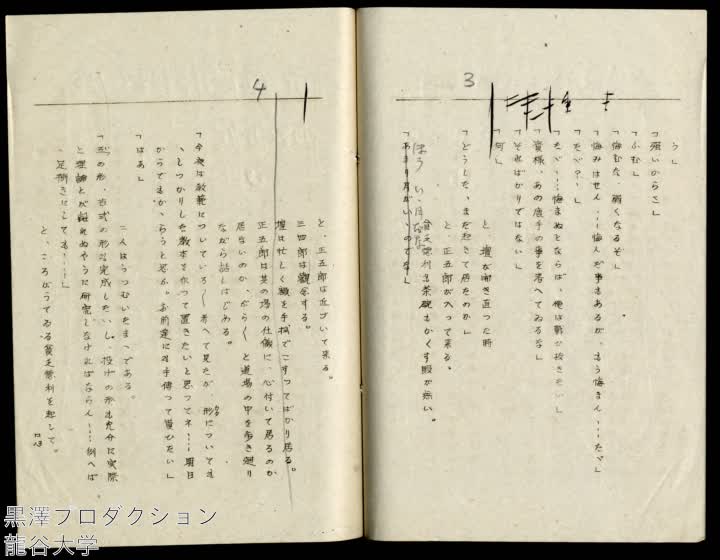 3
う」
「強いからさ」
「ふむ」
「悔むな、弱くなるぞ」
「悔みはせん…悔んだ事もあるが、もう悔まん……だが」
「だが?」
「だが……悔まぬとならば、俺は勝
「貴様、あの唐手の事を考へてゐるな」
「そればかりではない」
「何」
と、檀が向き直つた時
「どうした、まだ起きて居たのか」
と、正五郎が入つて来る。
貧乏徳利も茶碗もかくす暇が無い。
ほう いゝ月だな
「あまり月がいゝのでな」
4
と、正五郎は近づいて来る。
三四郎は観念する。
檀は忙しく顔を手拭でこすつてばかり居る。
正五郎は其の場の仕儀に、心付いて居るのか
居ないのか、ぶらぶらと道場の中を歩き廻り
ながら話しはじめる。
「今夜は教範についていろ〱考へて見たが、形についても
かた
しつかりした教本を作つて置きたいと思つてネ……明日
からでもかゝらうと思ふ。お前達にも手伝つて貰ひたい」
「はあ」
二人はうつむいたまゝである。
の形、古式の形も完成したいし、投げの形も充分に実際
と理論とが離れぬやうに研究しなければならん……例へば
足捌きにしても……」
と、ころがつてゐる貧乏徳利を起して。
黒澤プロダクション
龍谷大学